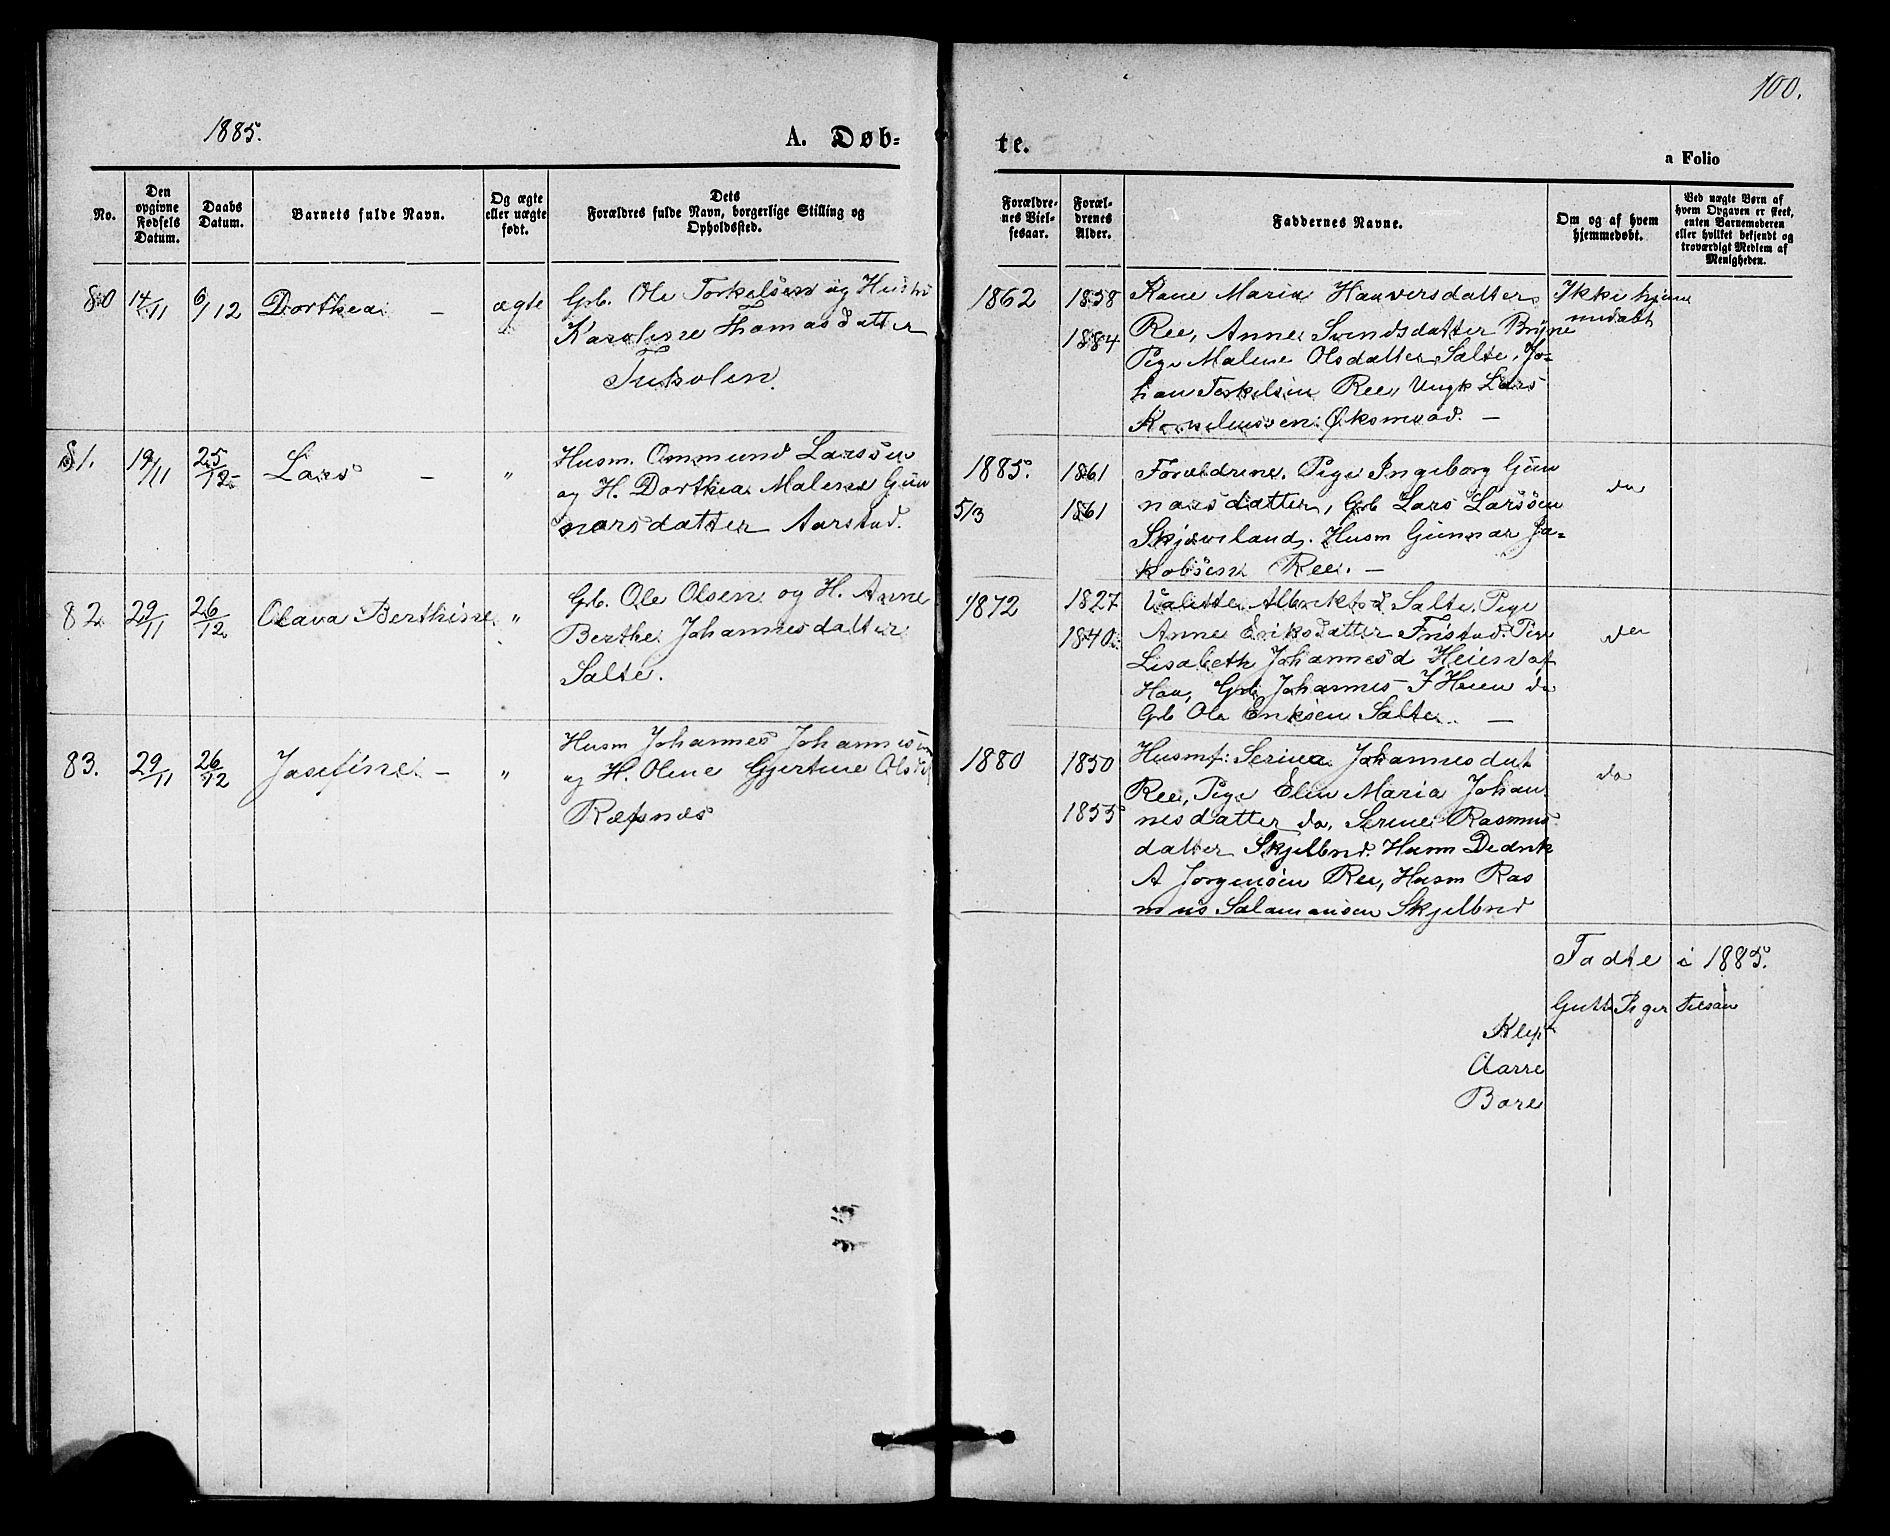 100.
1885.
A. Døb-
te.
a Folio
No.
Den opgivne Fødsels Datum.
Daabs Datum.
Barnets fulde Navn.
Og ægte eller uægte født.
Dets Forældres fulde Navn, borgerlige Stilling og Opholdssted.
Forældrenes Vielsesaar.
Forældrenes Alder.
Faddernes Navne.
Om og af hvem hjemmedøbt.
Ved uægte Børn af hvem Opgaven er skeet, enten Barnemoderen eller hvilket bekjendt og troværdigt Medlem af Menigheden.
80 14/11 6/12 Dorthea - ægte
Grb. Ole Torkelsen og Hustru
Karoline Thomasdatter
Tubolen.
1862 1838
1884
Kone Maria Hauversdatter
Ree, Anne Svendsdatter Bryne
Pige Malene Olsdatter Salte, Jo-
han Torkelsen Ree, Ungk Lars
Kornelinssen Øksnevad. -
Ikke hjem
medøbt
81. 19/11 25/12 Lars - "
Husm. Ommund Larssen
og H. Dorthea Malene Gun
narsdatter Aarstad.
1885.
5/3
1861
1861
Forældrene. Pige Ingeborg Gun
narsdatter, Grb Lars Larssen
Skjæveland. Husm Gunnar Ja-
kobsen Ree. -
do
82 29/11 26/12 Olava Berthine "
Grb. Ole Olsen og H. Anne
Berthe Johannesdatter
Salte.
1872 1827
1840
Albrektsd Salte, Pige
Anne Eriksdatter Fristad. Pige
Lisabeth Johannesd Heien af
Haa, Grb Johannes J Heien do
Grb Ole Eriksen Salte. -
do
83. 29/11 26/12 Josefine - "
Husm Johannes Johannessen
og H. Oline Gjertine Olsd
Ræfsnæs
1880 1850
1855
Husmf: Serina Johannesdat
Ree, Pige Elen Maria Johan-
nesdatter do, Serine Rasmus
datter Skjelbred. Husm Dedrik
A Jørgensen Ree, Husm Ras
mus Salamonsen Skjelbred
do
Fødte i 1885.
Gutte Piger Tilsam
Klep
Aarre
Bore